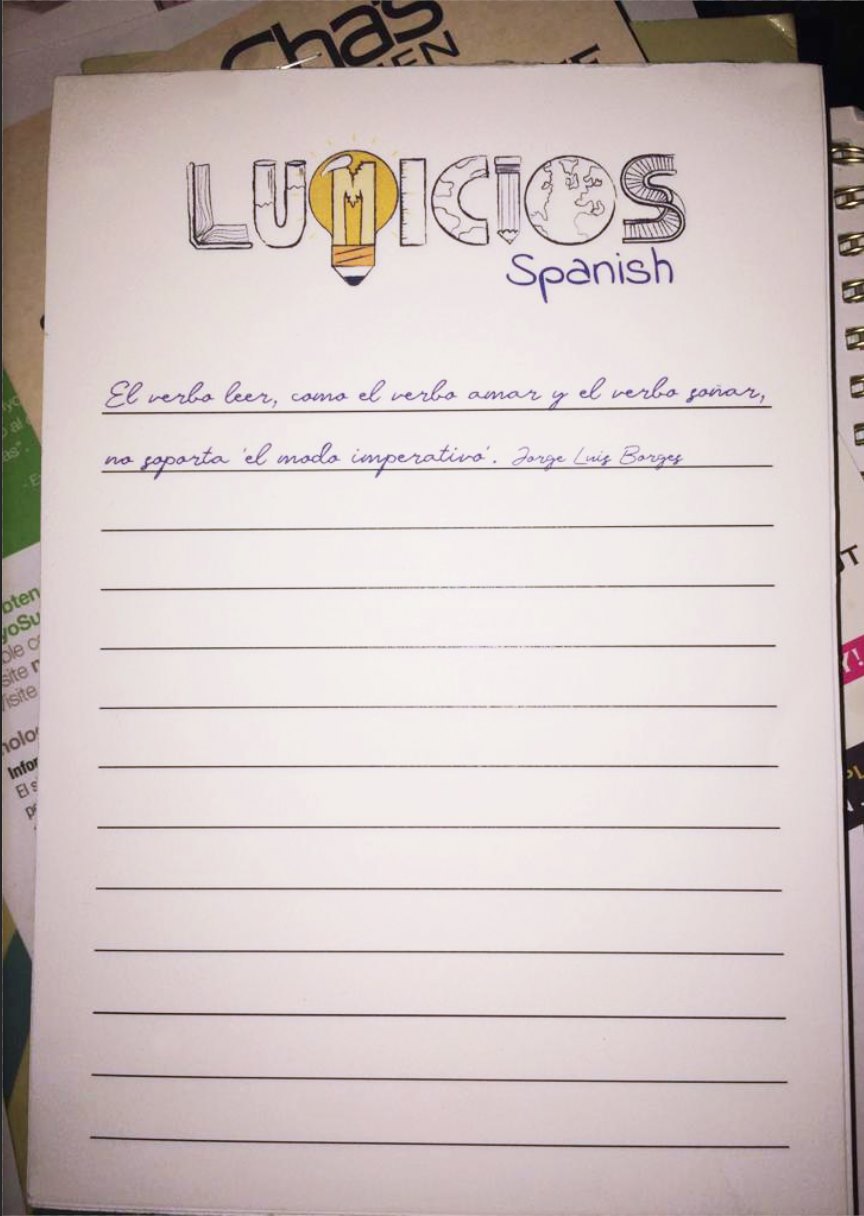 Cha's
LUMICIOS
Spanish
El verbo leer, como el verbo amar y el verbo soñar,
no soporta 'el modo imperativo'. Jorge Luis Borges
Y!